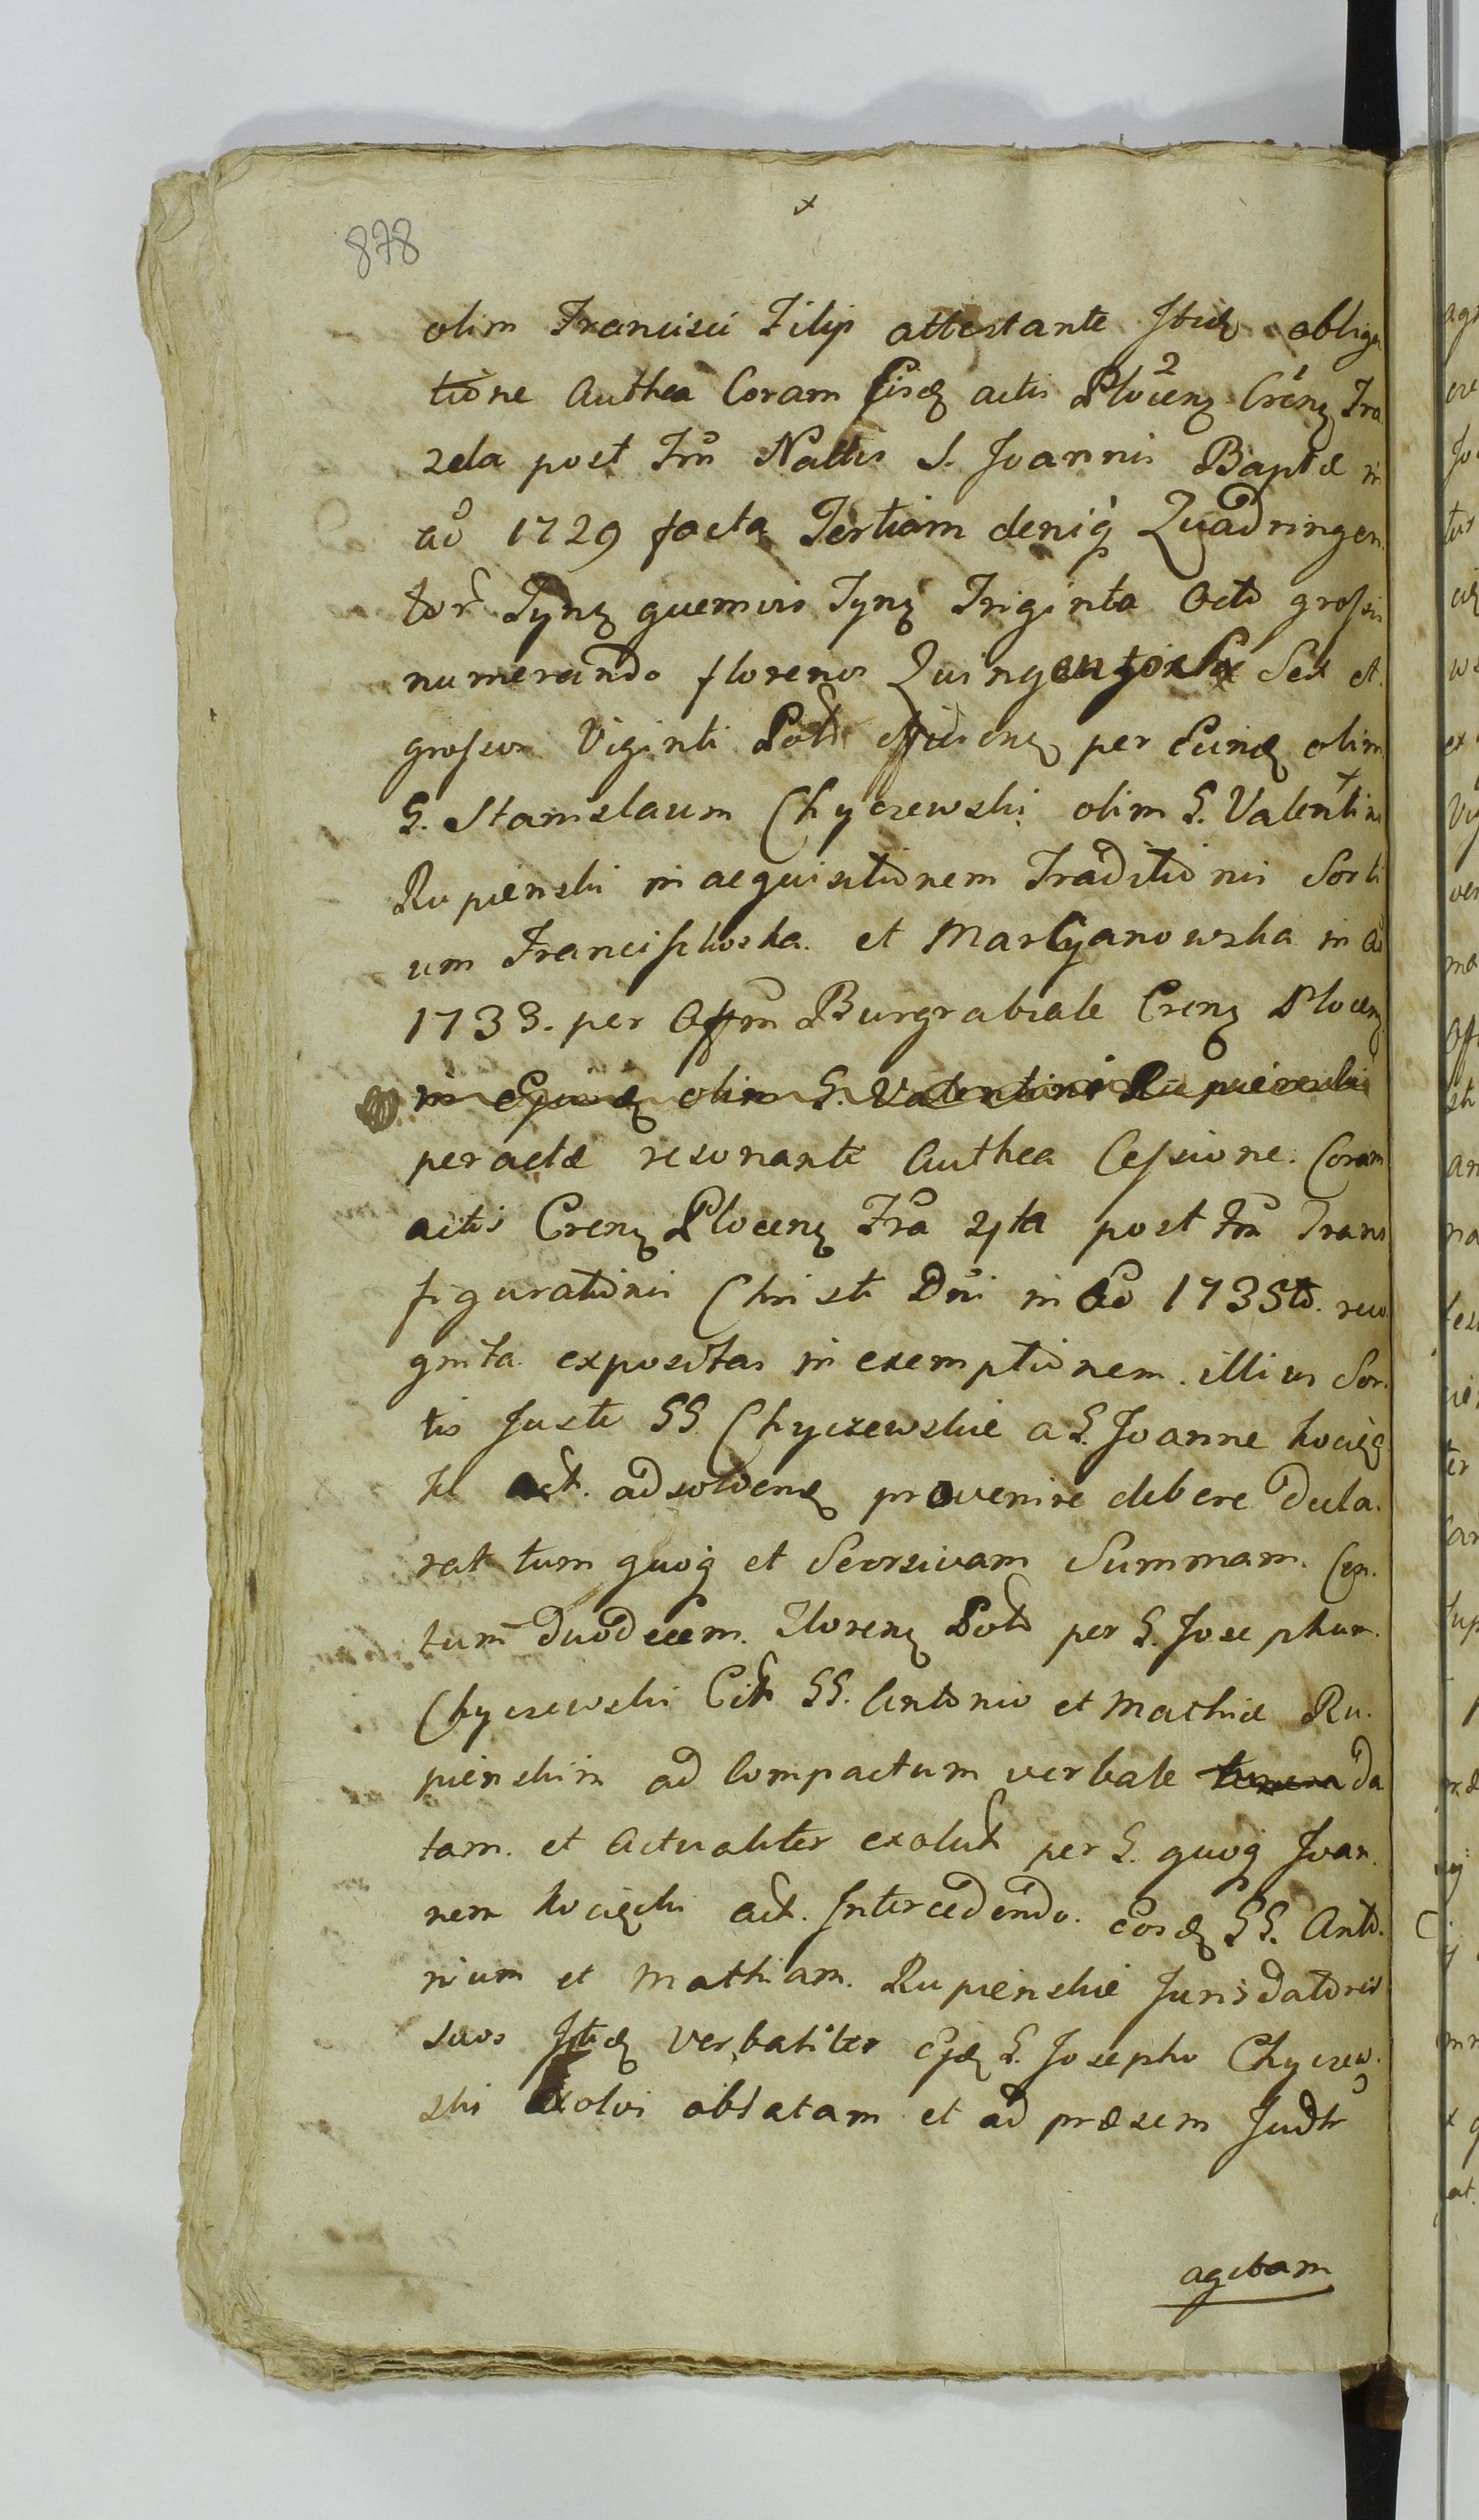 878
olim Francisci Filip attestante Ibidẹ obliga
tione Authca Coram Eisdẹ actis Plocenẹ Crenẹ Fra
2da post Fm Nattis S. Joannis Baptæ in
aõ 1729 facta Tertiam deniq Quadringen
tor Tynẹ quemvis Tynẹ Triginta Octo grossis
numerando florenos Quingentos Sex et
grossos Viginti Polo efficienẹ per Eundẹ olim
G. Stanislaum Chyczewski olim G. Valentini
Rupienski in acquisitionem Traditionis Sorti
um Franciszkoska et Marcyanowska in Aõ
1733. per Offm Burgrabiale Crenẹ Plocenẹ
in Ejusdẹ olim G. Valentini Rupienski
peractæ resonante Authca Cessione Coram
actis Crenẹ Plocenẹ Fra 4ta post Fm Trans
figurationis Christi Dni in Aõ 1735to reco
gnita expositas in exemptionem illius Sor
tis Juste GG. Chyczewskie a G. Joanne Kocięc
ki act. adsolvendẹ provenire debere decla
rat tum quoq et Seorsivam Summam Cen
tum duodecem Florenẹ Polo per G. Josephum
Chyczewski Cit GG. Antonio et Mathiæ Ru
pienskim ad Compactum verbale da
tam et Actualiter exolut per G. quoq Joan
nem Kocięcki act. Intercedendo Eosdẹ GG. Anto
nium et Mathiam Rupienskie Jurisdatores
suos Itidẹ Verbaliter Ejdẹ G. Josepho Chyczew
ski exolvi oblatam et ad præsens Judtr
agitam